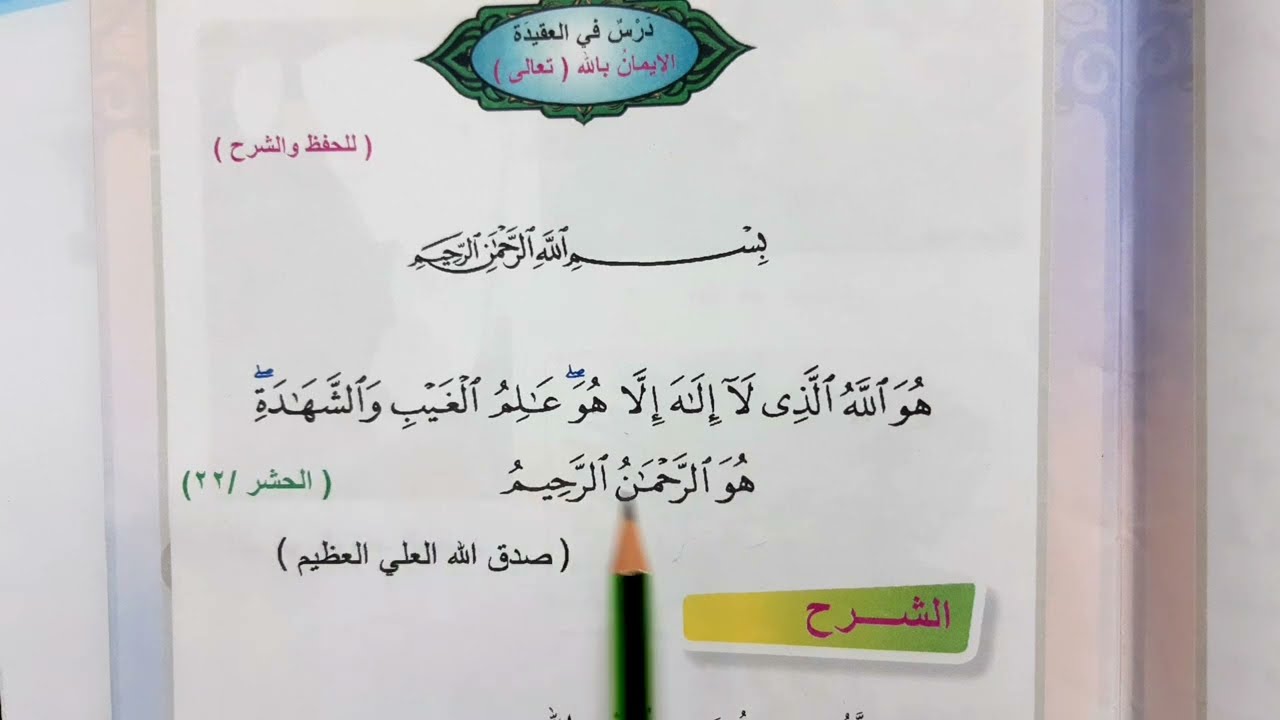 دَرْسٌ في العقيدَة
الإيمانُ بالله ( تعالى )
( للحفظ والشرح )
بِسْمِ ٱللَّهِ ٱلرَّحْمَٰنِ ٱلرَّحِيمِ
هُوَ ٱللَّهُ ٱلَّذِى لَآ إِلَٰهَ إِلَّا هُوَ ۖ عَٰلِمُ ٱلْغَيْبِ وَٱلشَّهَٰدَةِ ۖ
هُوَ ٱلرَّحْمَٰنُ ٱلرَّحِيمُ ( الحشر /٢٢)
( صدق الله العلي العظيم )
الشـــرح